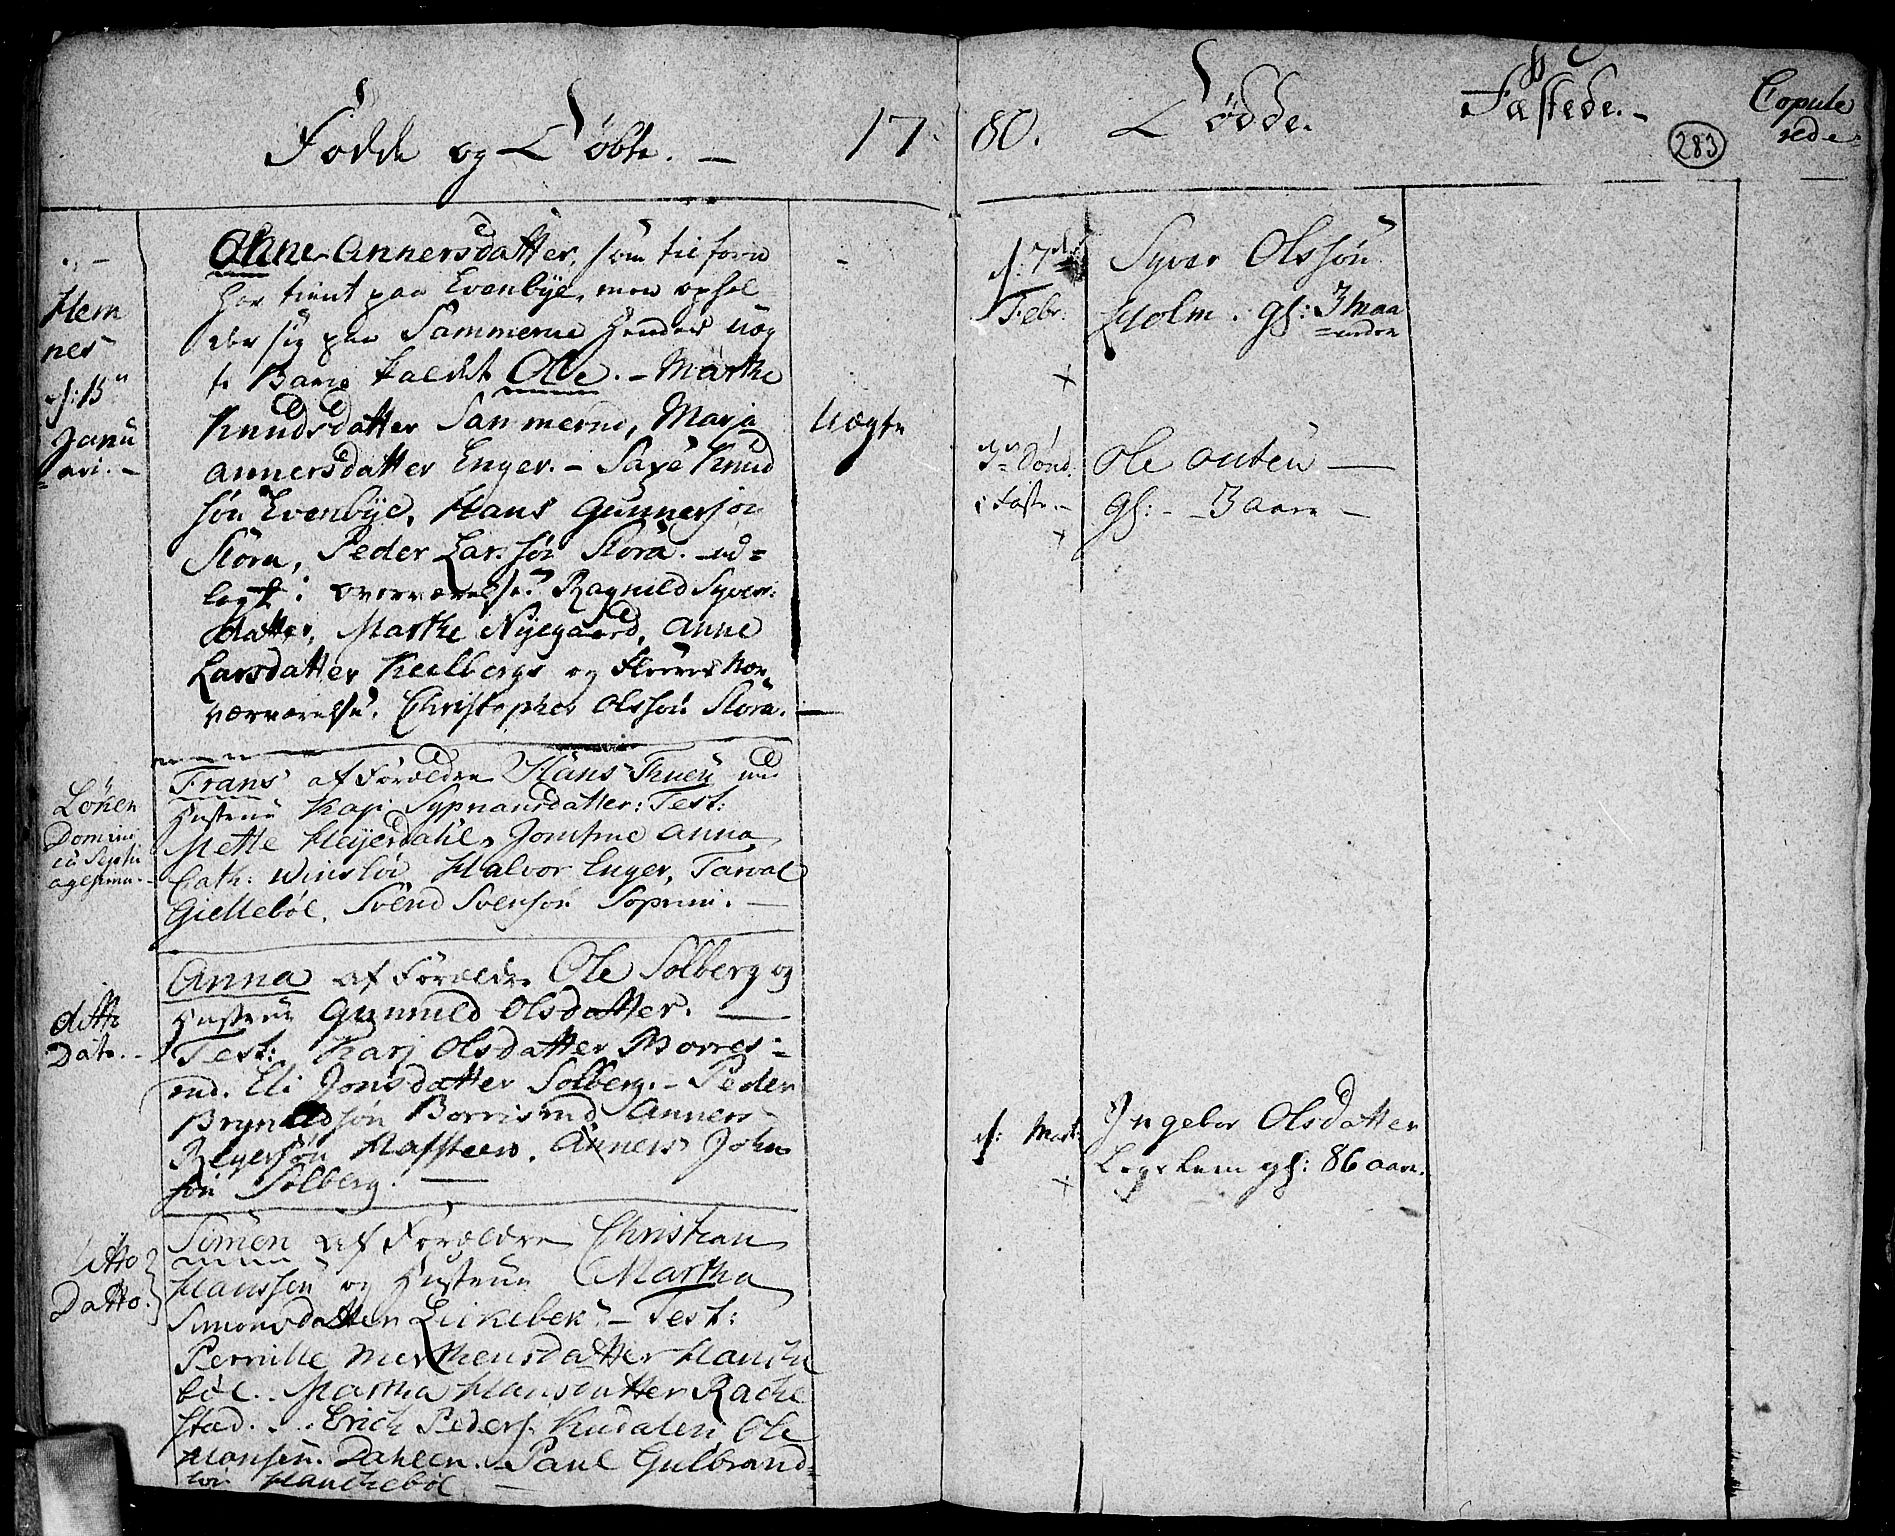 Fødde og Døbte. —
17
80.
Dødde.
Fæstede. -
Copule
rede
283
Hem
nes
d: 15
Janu
ari. -
Anne Annersdatter, som tilforn
har tient paa Evenbye, men ophol
der sig paa Sammerne Hendes uæg
te Barn kaldet Ole. - Marthe
Knudsdatter Sammerne, Marja
Annersdatter Enger. - Saxe Knud
søn Evenbye, Hans Gunnersøn
Kora, Peder Larssøn Kora. ud=
lagt: overværelse. Ragnild Syvers
datter, Marthe Nyegaard, Anne
Larsdatter og
værværelse. Christopher Olssøn Kora.
Uægte
Løken
Domini
ca Septu
agesima
Frans af Forældre Hans Thuen
Hustrue Kari Test:
Mette Heyerdahl, Jomfrue Anna
Cath: Winsløv Halvor Enger, Tarval
Giellebøl, Svend Svensøn Soprim. —
ditto
Dato. -
Anna af Forældre Ole Solberg og
Hustrue Gunnild Olsdatter. —
Test: Karj Olsdatter Borres=
rud. Eli Jonsdatter Solberg. - Peder
Bryneldsøn Borrisrud Anners
Reyersøn Hafsteen. Anners John
søn Solberg. —
ditto
Datto.
Simen af Forældre Christian
Hanssøn og Hustrue Martha
Simonsdatter Lirkebek - Test:
Pernille Morthensdatter Hauche
bøl. Martha Hansdatter Rache
stad. Erich Peders. Kudalen, Ole
Hansøn Dahlen. - Paul Gulbrand
søn Hauchebøl —
d: 7de
Febr:
Syver Olssøn
Holm. gl: 3 maa
=neder
Sønd:
i Faste. -
Ole Outen —
gl: - 3 aar -
d: Mart:
Ingebor Olsdatter
gl: 86 aar.